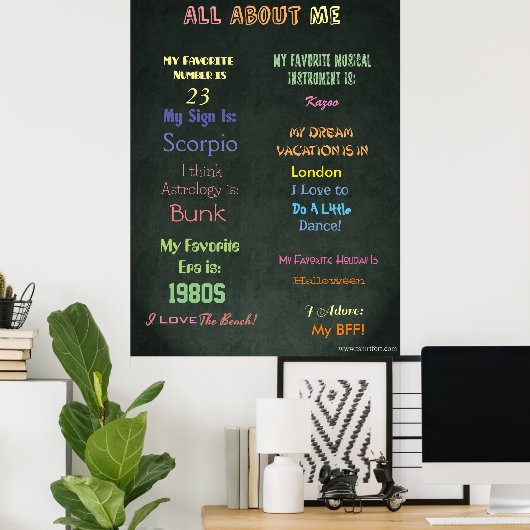 ALL ABOUT ME
My Favorite
Number is
23
My Sign Is:
Scorpio
I think
Astrology is:
Bunk
My Favorite
Era is:
1980s
I LOVE The Beach!
My Favorite Musical
Instrument is:
Kazoo
My Dream
Vacation is in
London
I Love to
Do A Little
Dance!
My Favorite Holiday Is
Halloween
I Adore:
My BFF!
www.tshirtfort.com